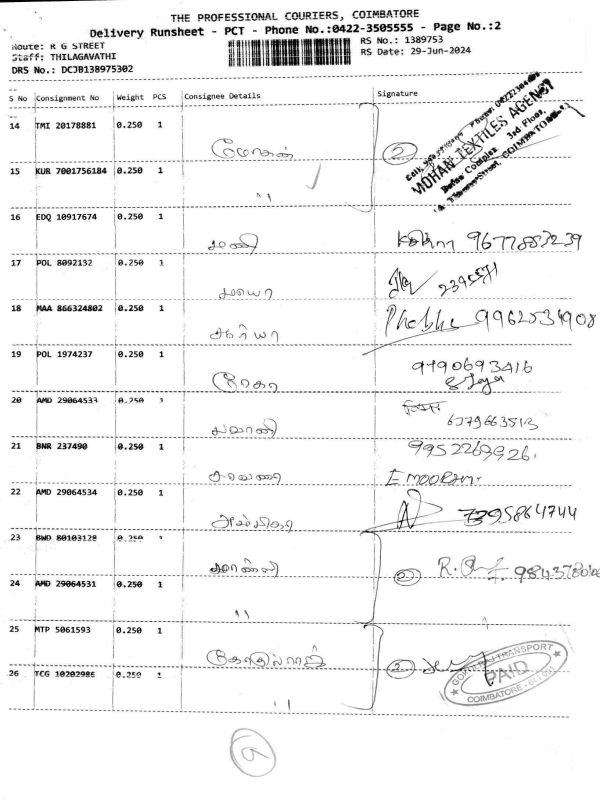 THE PROFESSIONAL COURIERS, COIMBATORE
Delivery Runsheet - PCT - Phone No.:0422-3505555 - Page No.:2
Route: R G STREET
Staff: THILAGAVATHI
DRS No.: DCJB138975302
RS No.: 1389753
RS Date: 29-Jun-2024
S No Consignment No Weight PCS Consignee Details Signature
14 TMI 20178881 0.250 1
மோகன் 2
MOHAN TEXTILES AGENCY
3rd Floor,
COIMBATORE
15 KUR 7001756184 0.250 1
"
16 EDQ 10917674 0.250 1
மணி 9677883239
17 POL 8092132 0.250 1
2395571
18 MAA 866324802 0.250 1
9962534908
19 POL 1974237 0.250 1
ரேகா 9190693416
20 AMD 29064533 0.250 1
பவானி 6379663513
21 BNR 237490 0.250 1
சரவணா 9952269926.
22 AMD 29064534 0.250 1
7395864744
23 BWD 80103128 0.250 1
2 R.
24 AMD 29064531 0.250 1
"
25 MTP 5061593 0.250 1
2
TRANSPORT
PAID
COIMBATORE
26 TCG 10202986 0.250 1
"